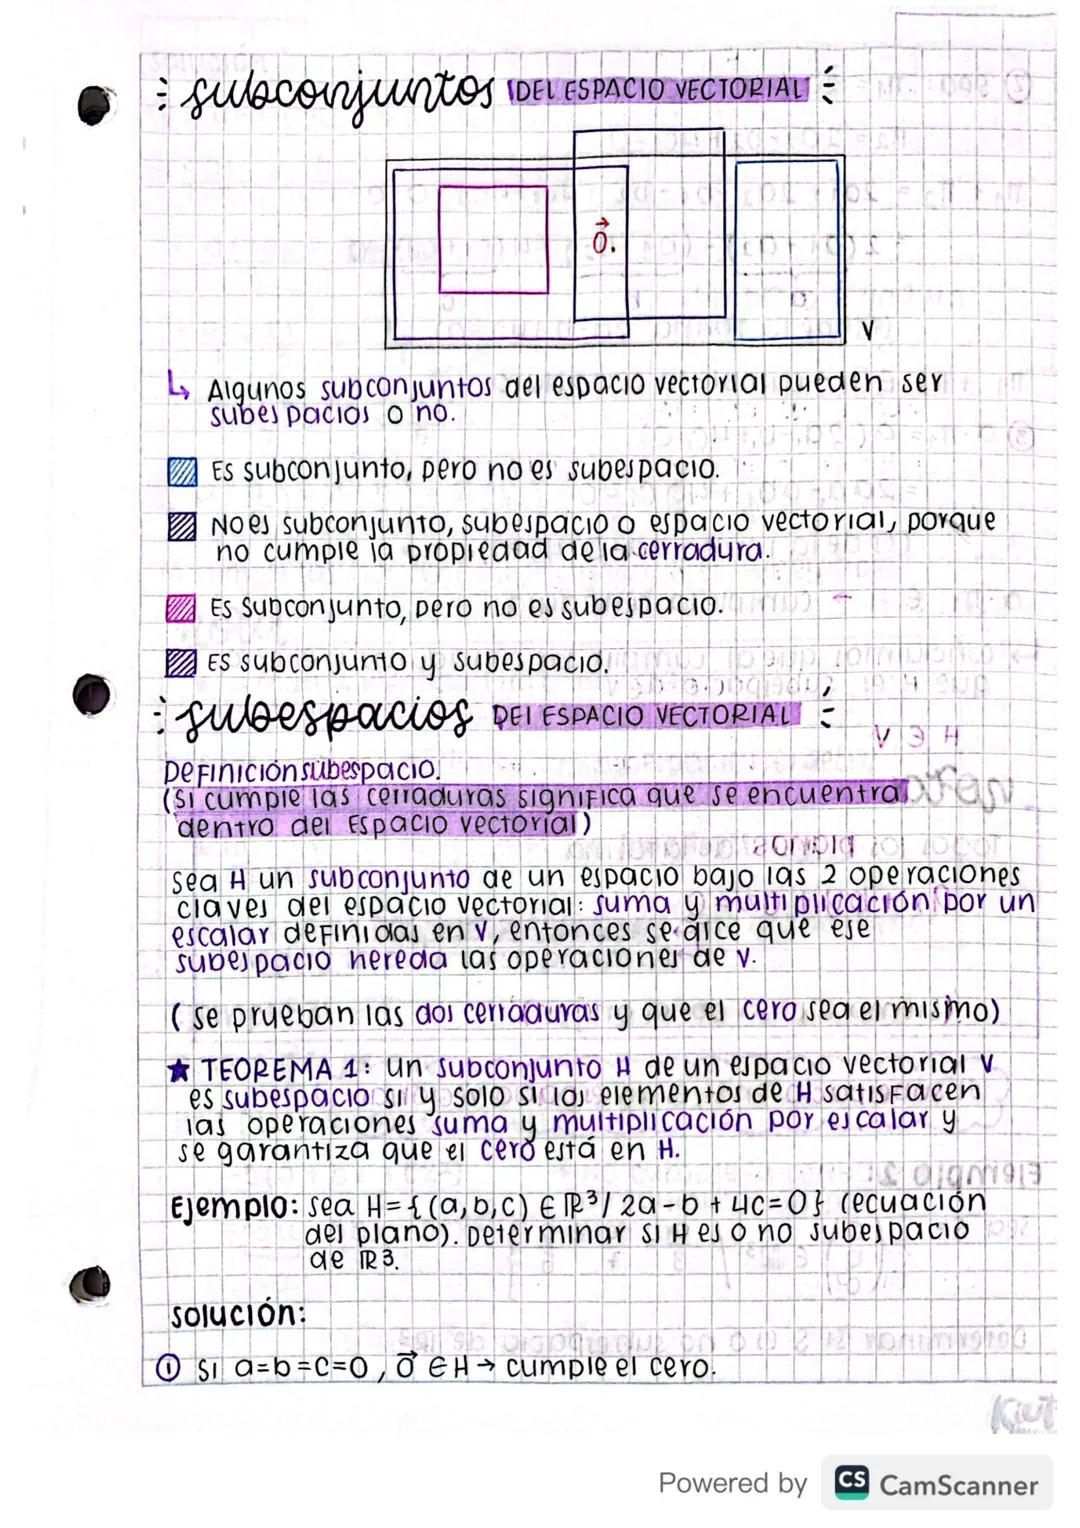 subconjuntos DEL ESPACIO VECTORIAL
0.
V
↳ Algunos subconjuntos del espacio vectorial pueden ser
subespacios o no.
Es subconjunto, pero no es subespacio.
No es subconjunto, subespacio o espacio vectorial, porque
no cumple la propiedad de la cerradura.
Es Subconjunto, pero no es subespacio.
ES subconjunto y subespacio.
subespacios DEl ESPACIO VECTORIAL
Definición subespacio.
(Si cumple las cerraduras significa que se encuentra
dentro del Espacio vectorial)
Sea H un subconjunto de un espacio bajo las 2 operaciones
claves del espacio vectorial: suma y multiplicación por un
escalar definidas en V, entonces se dice que ese
subespacio hereda las operaciones de V.
( se prueban las dos cerraduras y que el cero sea el mismo)
★ TEOREMA 1: Un subconjunto H de un espacio vectorial V
es subespacio si y solo si los elementos de H satisfacen
las operaciones suma y multiplicación por escalar y
se garantiza que el cero está en H.
Ejemplo: Sea H={(a,b,c) ∈ ℝ³/ 2a-b+4c=0} (ecuación
del plano). Determinar si H es o no subespacio
de ℝ3.
Solución:
① Si a=b=c=0, 0⃗ ∈ H → cumple el cero.
Powered by CS CamScanner